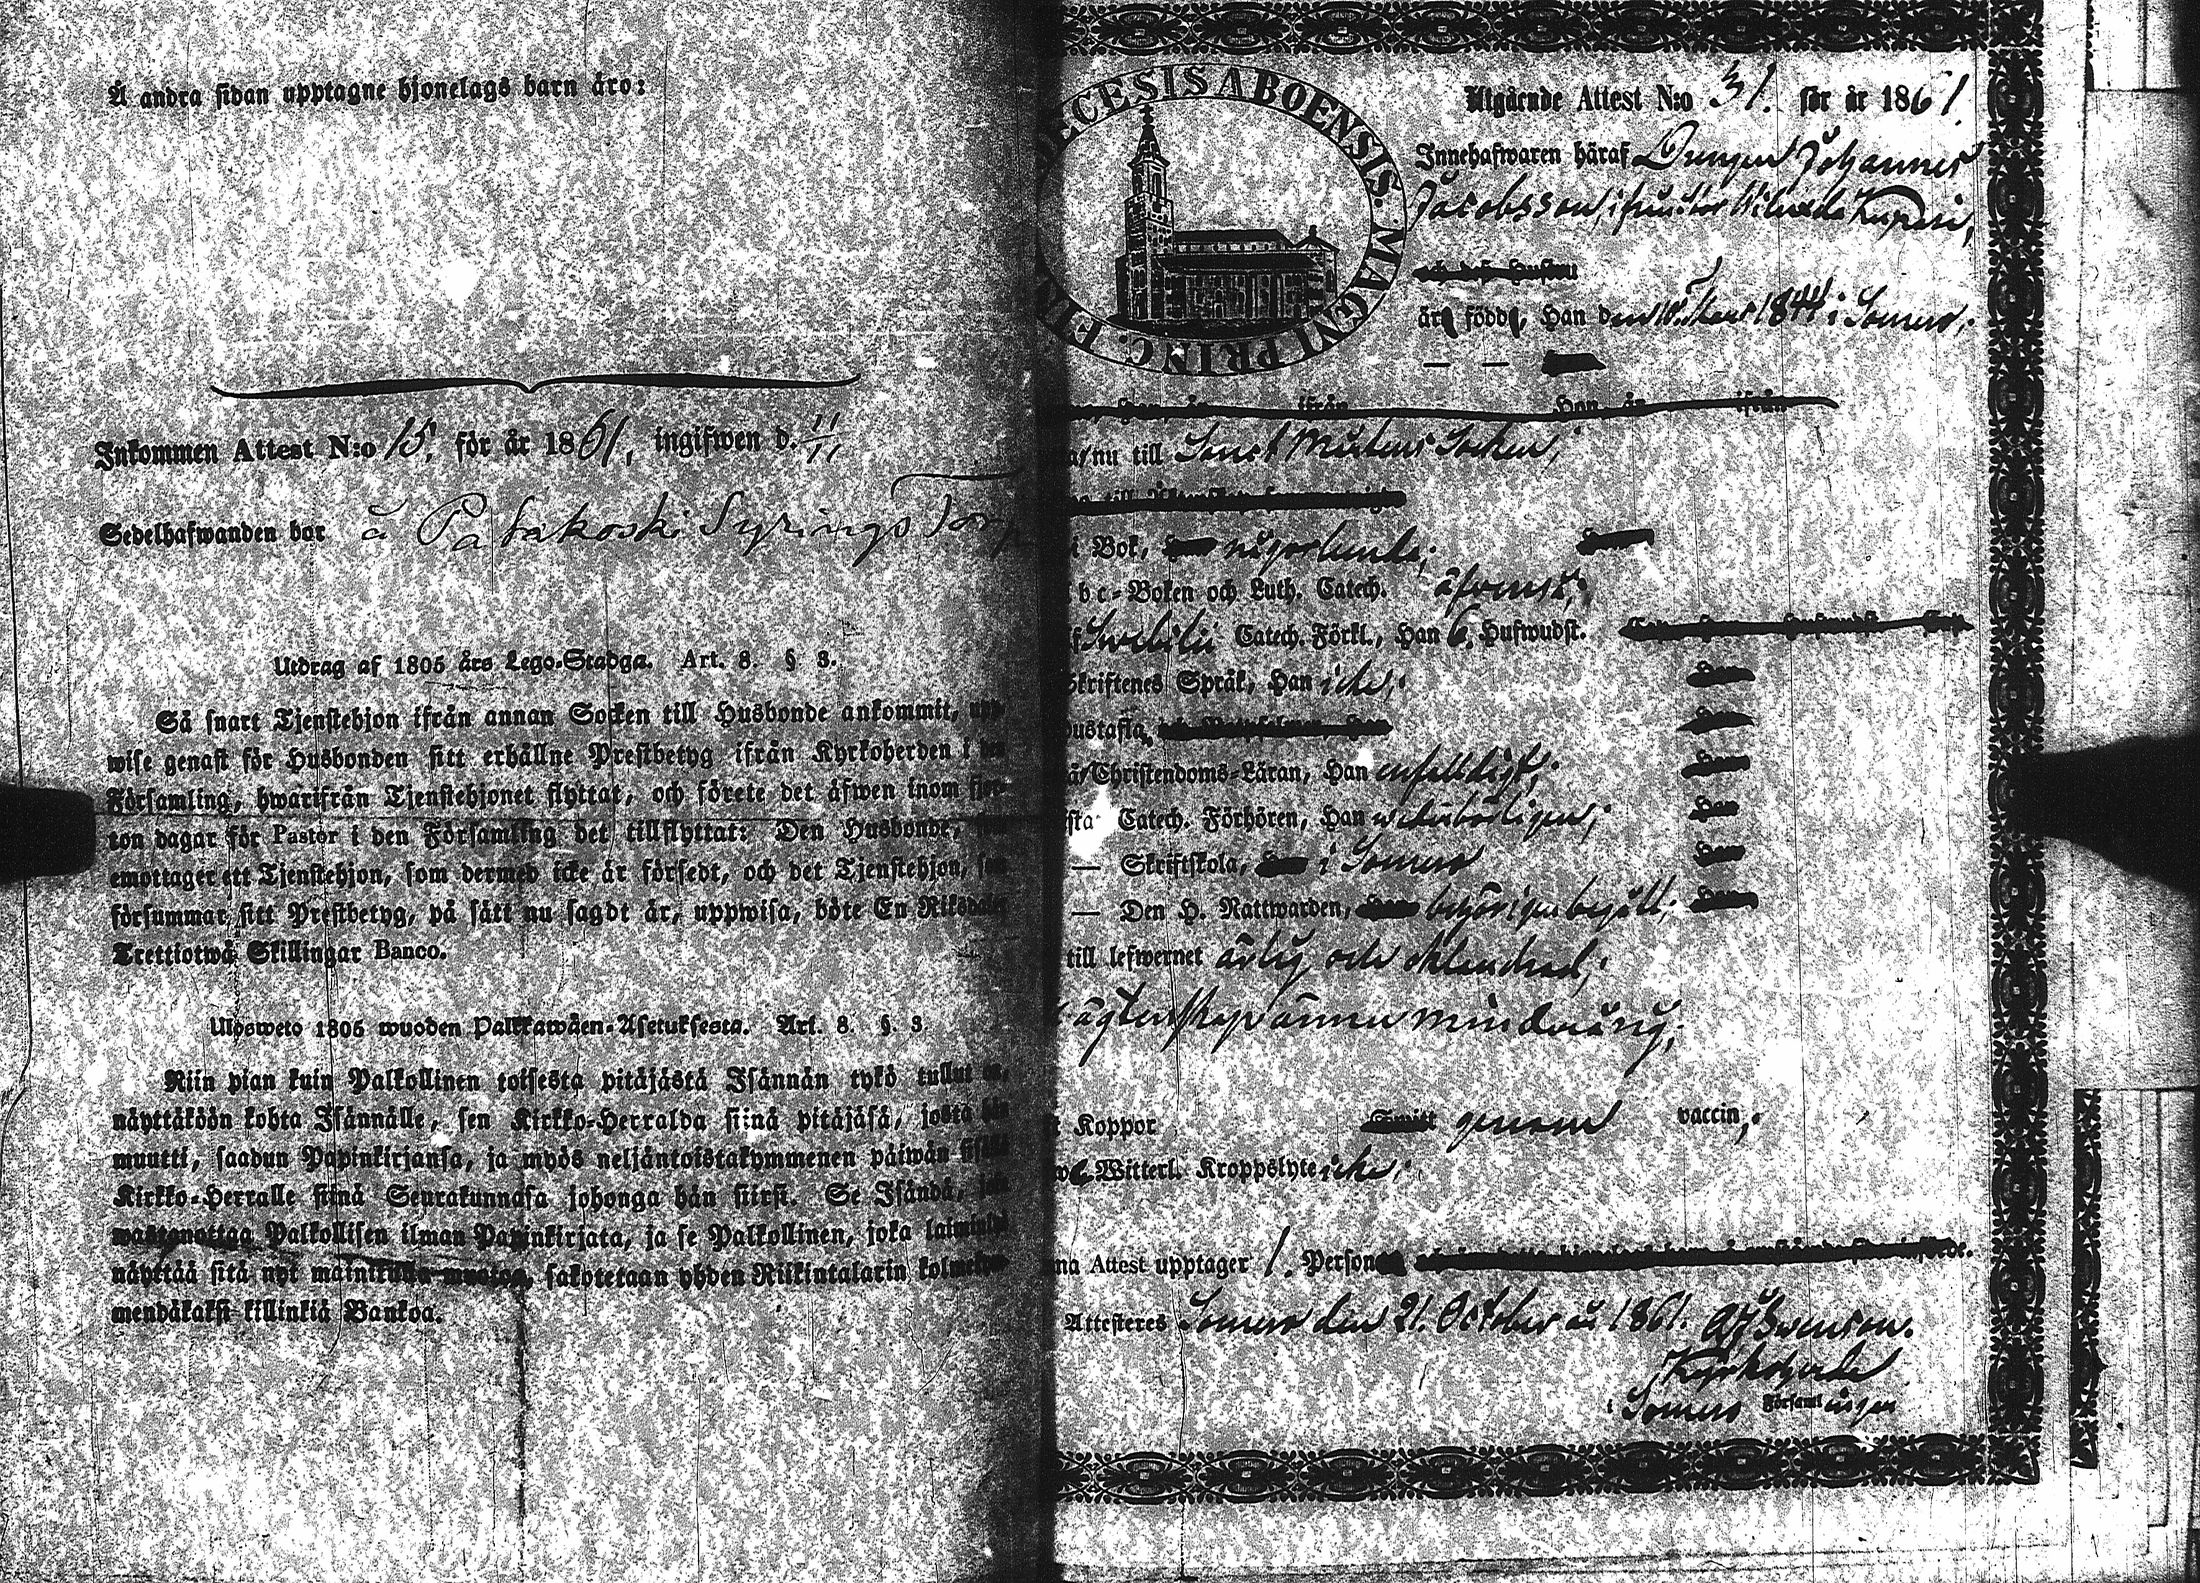 Å andra sidan upptagne hjonelags barn äro:
Inkommen Attest N:o 15. för år 1861, ingifwen d. 11/11
Sedelhafwanden bor å Patakoski Syrings Torp
Utdrag af 1805 års Lego-Stadga. Art. 8. § 3.
Så snart Tjenstehjon ifrån annan Socken till Husbonde ankommit, upp-
wise genast för Husbonden sitt erhållne Prestbetyg ifrån Kyrkoherden i den
Församling, hwarifrån Tjenstehjonet flyttat, och förete det äfwen inom fjor-
ton dagar för Pastor i den Församling det tillflyttat: Den Husbonde, som
emottager ett Tjenstehjon, som dermed icke är försedt, och det Tjenstehjon, som
försummar sitt Prestbetyg, på sätt nu sagdt är, uppwisa, böte En Riksdaler
Trettiotwå Skillingar Banco.
Ulosweto 1805 wuoden Palkkawäen-Asetuksesta. Art. 8. §. 3
Niin pian kuin Palkollinen toisesta pitäjästä Isännän tykö tullut on,
näyttäköön kohta Isännälle, sen Kirkko-Herralda siinä pitäjäsä, josta hän
muutti, saadun Papinkirjansa, ja myös neljäntoistakymmenen päiwän sisällä
Kirkko-Herralle siinä Seurakunnasa johonga hän siirsi. Se Isändä, joka
wastanottaa Palkollisen ilman Papinkirjata, ja se Palkollinen, joka laiminlyö
näyttää sitä nyt mainitulla muotoa, sakotetaan yhden Riikintalarin kolmekym-
mendäkaksi killinkiä Bankoa.
CESIS ABOENSIS. MAGNI PRINC. FIN
Utgående Attest N:o 31. för år 1861.
Innehafwaren häraf Drengen Johannes
Jacobsson, ifrån
och dess Hustru
äro födde, Han den 1844 i Somero,
— —
Han, är ifrån Hon, är ifrån
nu till Sanct Mårtens Socken,
till Äktenskap
i Bok, Han någorlunda;
b c-Boken och Luth. Catech. äfwenså;
Swebilii Catech. Förkl., Han 6. Hufwudst.
Skriftenes Språk, Han icke;
Hustafla,
Christendoms-Läran, Han enfaldigt;
Catech. Förhören, Han wederbörligen;
— Skriftskola, Han i Somero
— Den H. Nattwarden, Han behörigen begått;
till lefwernet ärlig och oklandrad;
ägtenskap ännu minderårig;
Koppor genom vaccin;
Witterl. Kroppslyte icke;
na Attest upptager 1. Person
Attesteres Somero den 21. October år 1861. Swenson.
Kyrkoherde
i Somero Församlingen